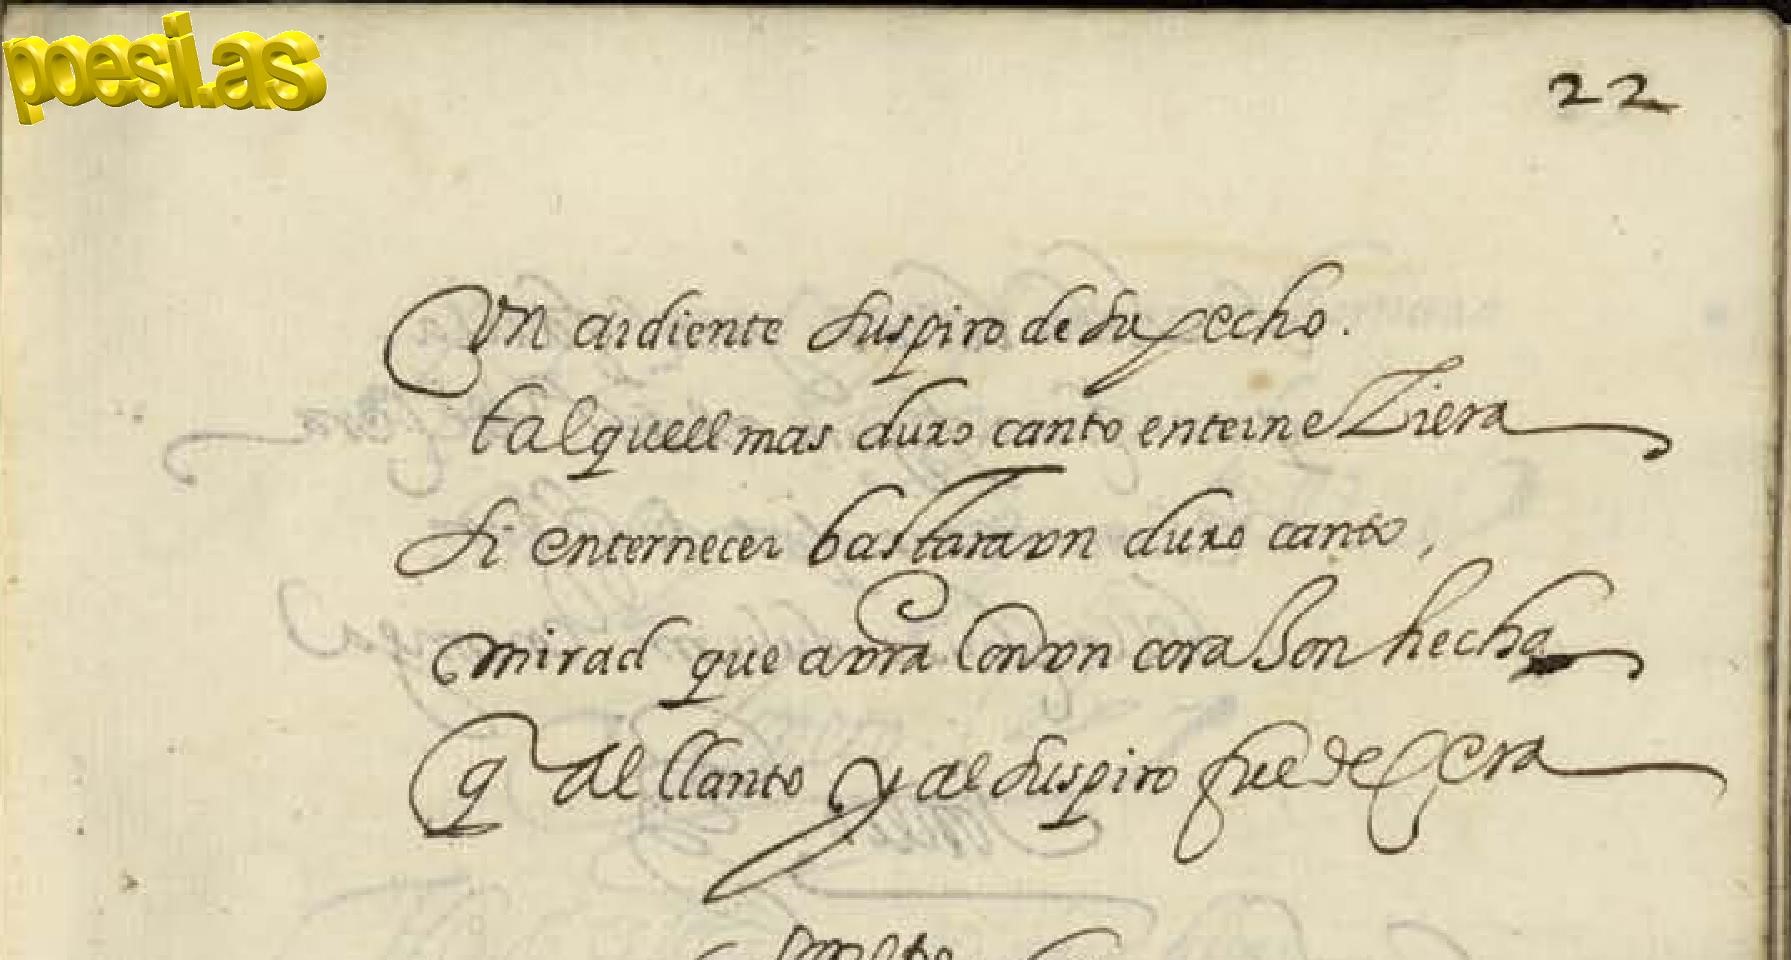 poesi.as
22
Vn ardiente suspiro de su pecho.
tal quell mas duro canto enterneziera
si enternecer bastara vn duro canto,
mirad que avra con vn corason hecho
q al llanto y al suspiro fue de cera